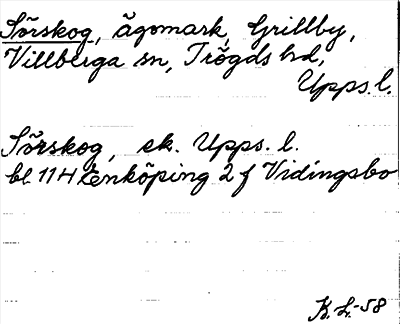 Sörskog, ägomark, Grillby,
Villberga sn, Trögds hd,
Upps. l.
Sörskog, ek. Upps. l.
bl 11H Enköping 2 f Vidingsbo
K.L.-58